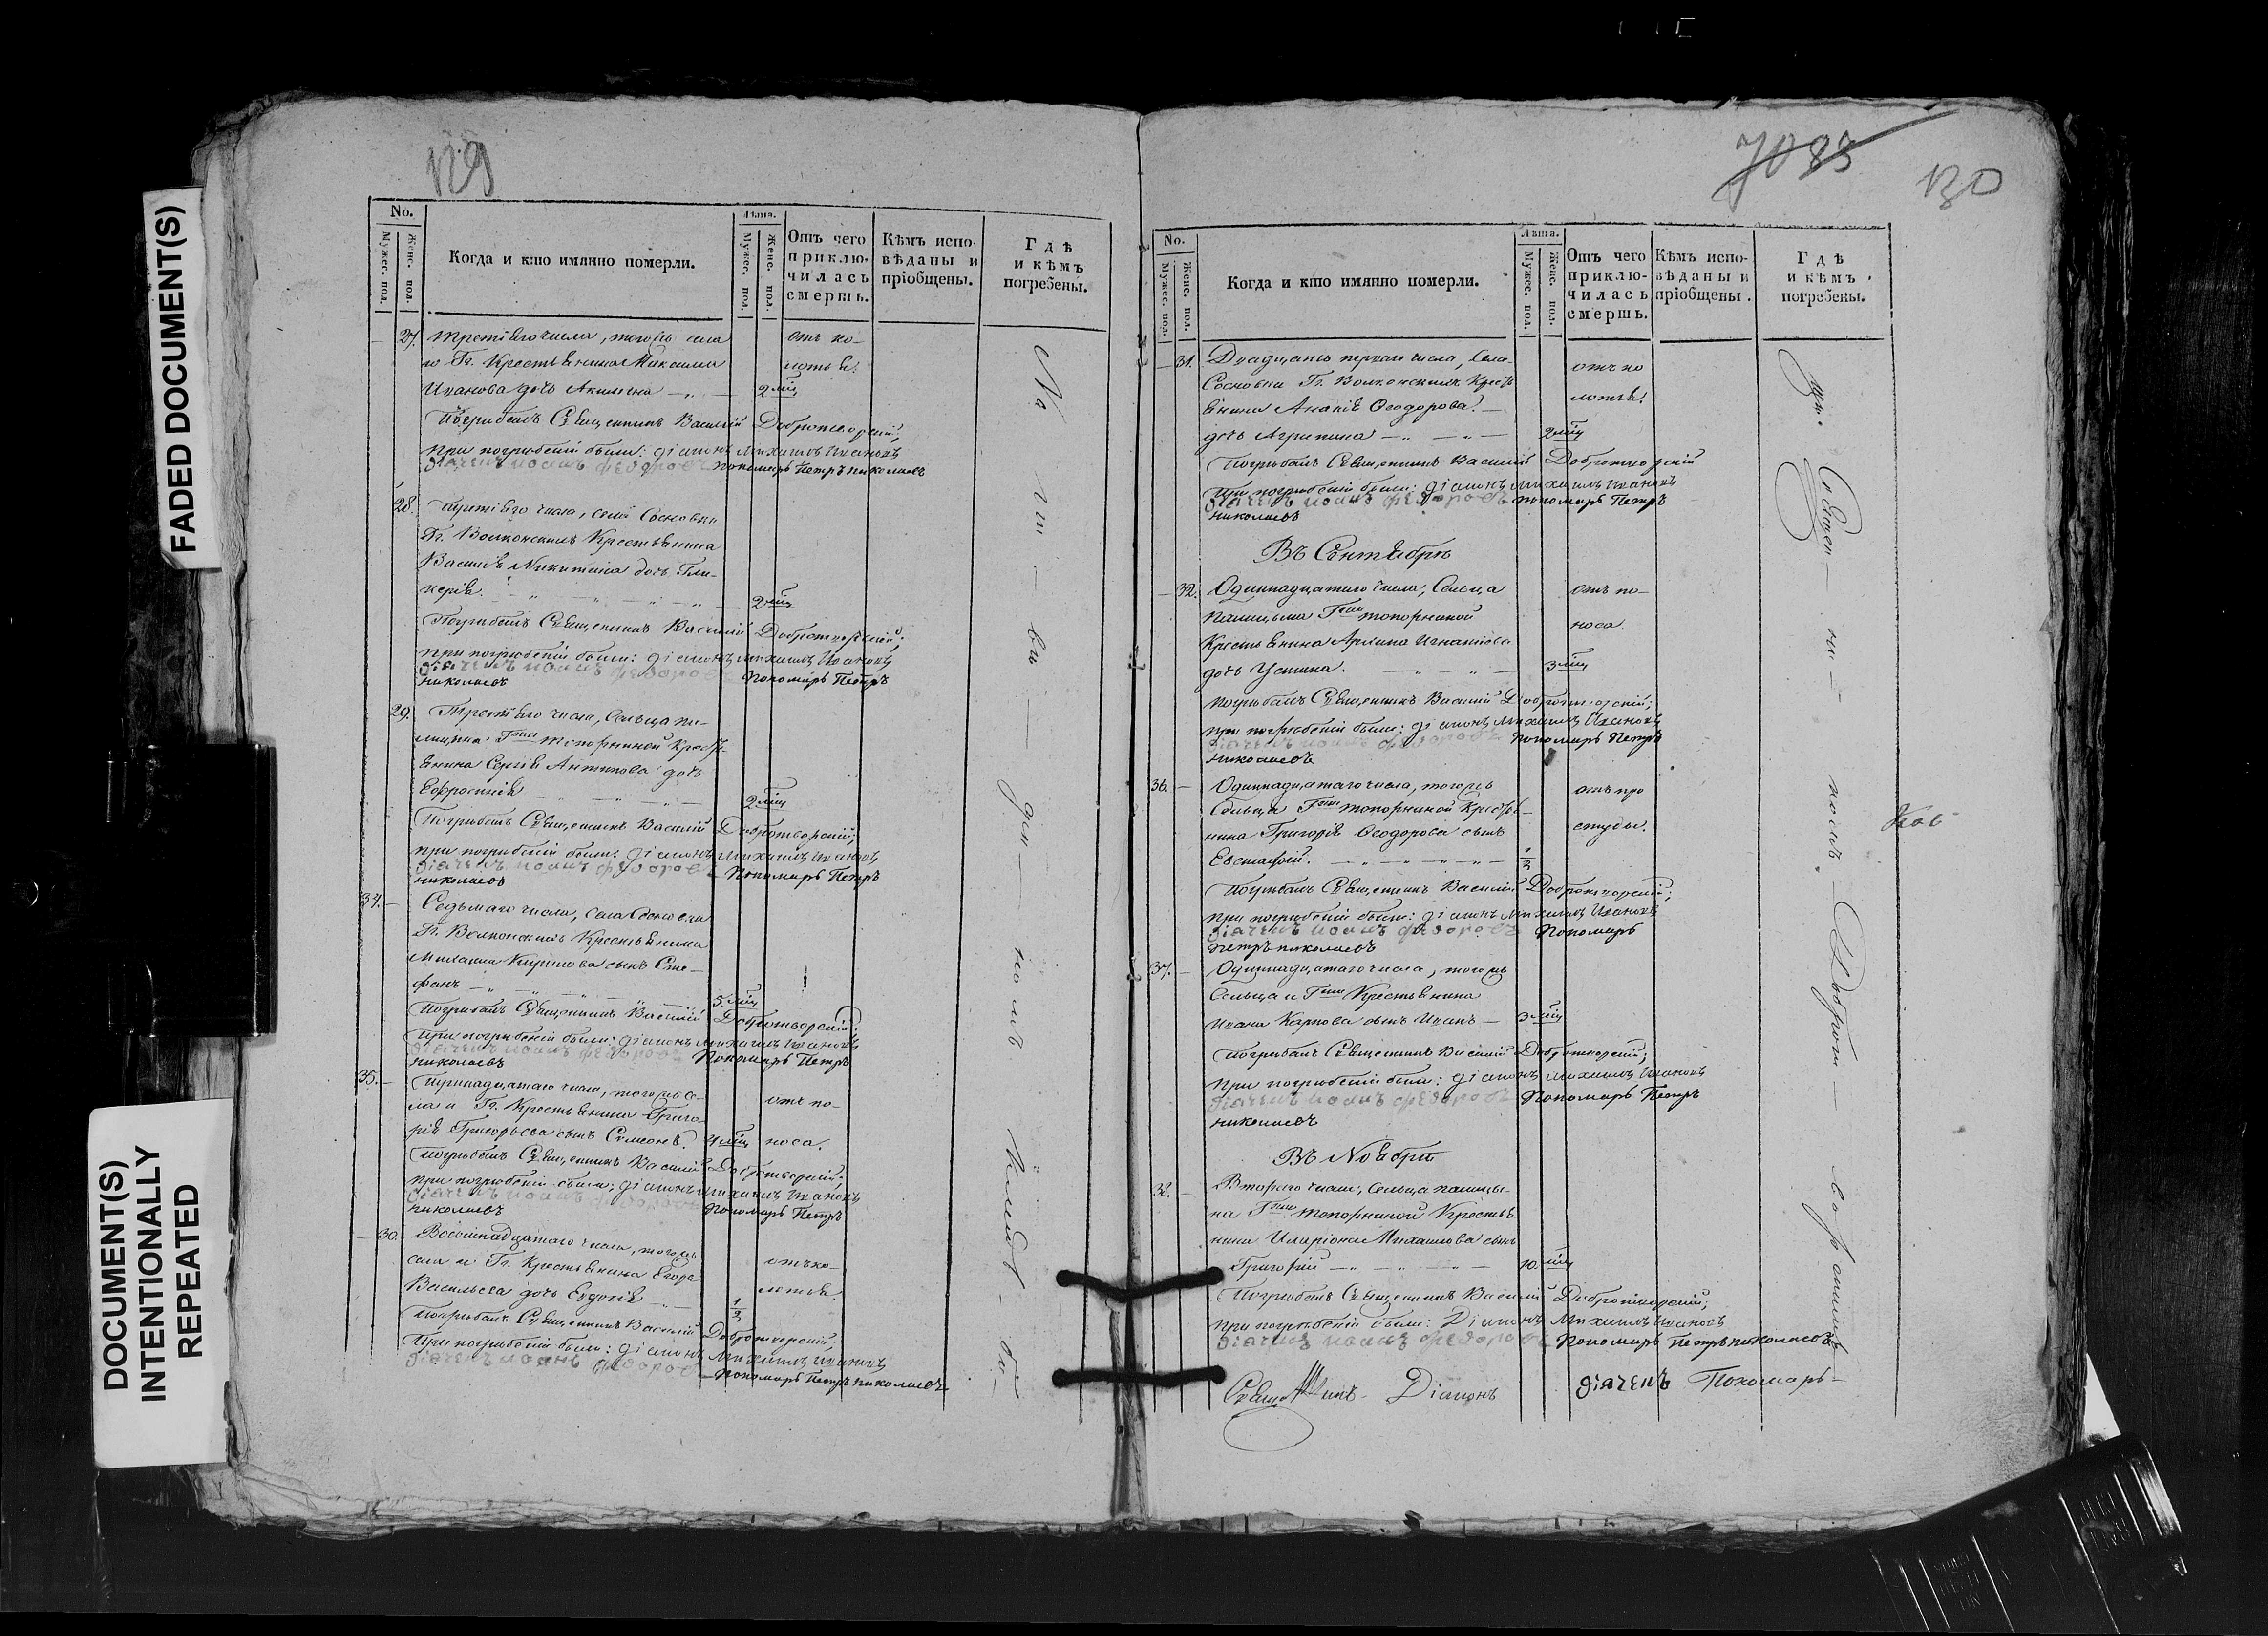 FADED DOCUMENT(S)
DOCUMENT(S)
INTENTIONALLY
REPEATED
129
No.
Мужес. пол.
Женс. пол.
Когда и кто имянно померли.
Лѣта.
Мужес. пол.
Женс. пол.
Отъ чего приключилась смерть.
Кѣмъ исповѣданы и пріобщены.
Гдѣ и кѣмъ погребены.
27. Третьяго числа, тогожъ села
и Гг. Крестьянина Максима
Иванова дочь Акилина
2 мѣц
Погребалъ Священникъ Василій Добротворскій;
при погребеніи были: діаконъ Михаилъ Ивановъ
діачекъ Иоанъ Федоровъ пономарь Петръ Николаевъ
28. Третьяго числа, села Сосновки
Гг. Волконскихъ Крестьянина
Василія Никитина дочь Гли-
керія.
2 мѣц
Погребалъ Священникъ Василій Добротворскій;
при погребеніи были: діаконъ Михаилъ Ивановъ
діачекъ Иоанъ Федоровъ Пономарь Петръ
Николаевъ
29. Третьяго числа, Сельца
Гжи Топорниной Кресть-
янина Сергія Антипова дочь
Ефросинія
2 мѣц
Погребалъ Священникъ Василій Добротворскій;
при погребеніи были: діаконъ Михаилъ Ивановъ
діачекъ Иоанъ Федоровъ Пономарь Петръ
Николаевъ
34. Седьмаго числа, села Сосновки
Гг. Волконскихъ Крестьянина
Кирилова сынъ Сте-
фанъ
5 мѣц
Погребалъ Священникъ Василій Добротворскій;
при погребеніи были: діаконъ Михаилъ Ивановъ
діачекъ Иоанъ Федоровъ Пономарь Петръ
Николаевъ
35. Тринадцатаго числа, тогожъ се-
ла и Гг. Крестьянина Григо-
рія Григорьева сынъ Симеонъ.
4 мѣц
отъ по-
носа.
Погребалъ Священникъ Василій Добротворскій;
при погребеніи были: діаконъ Михаилъ Ивановъ
діачекъ Иоанъ Федоровъ Пономарь Петръ
Николаевъ
30. Восемнадцатаго числа, тогожъ
села и Гг. Крестьянина Егора
Васильева дочь Евдокія
1/2
Погребалъ Священникъ Василій Добротворскій;
При погребеніи были: діаконъ Михаилъ Ивановъ
діачекъ Иоанъ Федоровъ Пономарь Петръ Николаевъ
7083
130
No.
Мужес. пол.
Женс. пол.
Когда и кто имянно померли.
Лѣта.
Мужес. пол.
Женс. пол.
Отъ чего приключилась смерть.
Кѣмъ исповѣданы и пріобщены.
Гдѣ и кѣмъ погребены.
31. Двадцать перваго числа, Села
Сосновки Гг. Волконскихъ Кресть
янина Ананія Феодорова
дочь Агрипина
2 мѣц
Погребалъ Священникъ Василій Добротворскій
При погребеніи были: діаконъ Михаилъ Ивановъ
діачекъ Иоанъ Федоровъ пономарь Петръ
Николаевъ
Въ Сентябрѣ
32. Одиннадцатаго числа, Сельца
Гжи Топорниной
Крестьянина Игнатіева
дочь Устина.
3 мѣц
отъ по-
носа.
Погребалъ Священникъ Василій Добротворскій;
При погребеніи были: діаконъ Михаилъ Ивановъ
діачекъ Иоанъ Федоровъ Пономарь Петръ
Николаевъ
36. Одиннадцатаго числа, тогожъ
Сельца Гжи Топорниной Крестья-
нина Григорія Феодорова сынъ
Евстафій.
1/2
отъ про
студы.
Погребалъ Священникъ Василій Добротворскій;
при погребеніи были: діаконъ Михаилъ Ивановъ
діачекъ Иоанъ Федоровъ Пономарь
Петръ Николаевъ
37. Одиннадцатаго числа, тогожъ
Сельца и Гжи Крестьянина
Ивана Карпова сынъ Иванъ
3 мѣц
Погребалъ Священникъ Василій Добротворскій;
При погребеніи были: діаконъ Михаилъ Ивановъ
діачекъ Иоанъ Федоровъ Пономарь Петръ
Николаевъ
Въ Ноябрѣ
38. Втораго числа, Сельца
Гжи Топорниной Крестья-
нина Иларіона Михаилова сынъ
Григорій
10 мѣц
Погребалъ Священникъ Василій Добротворскій;
При погребеніи были: Діаконъ Михаилъ Ивановъ
діачекъ Иоанъ Федоровъ Пономарь Петръ Николаевъ
Діаконъ
діачекъ Пономарь